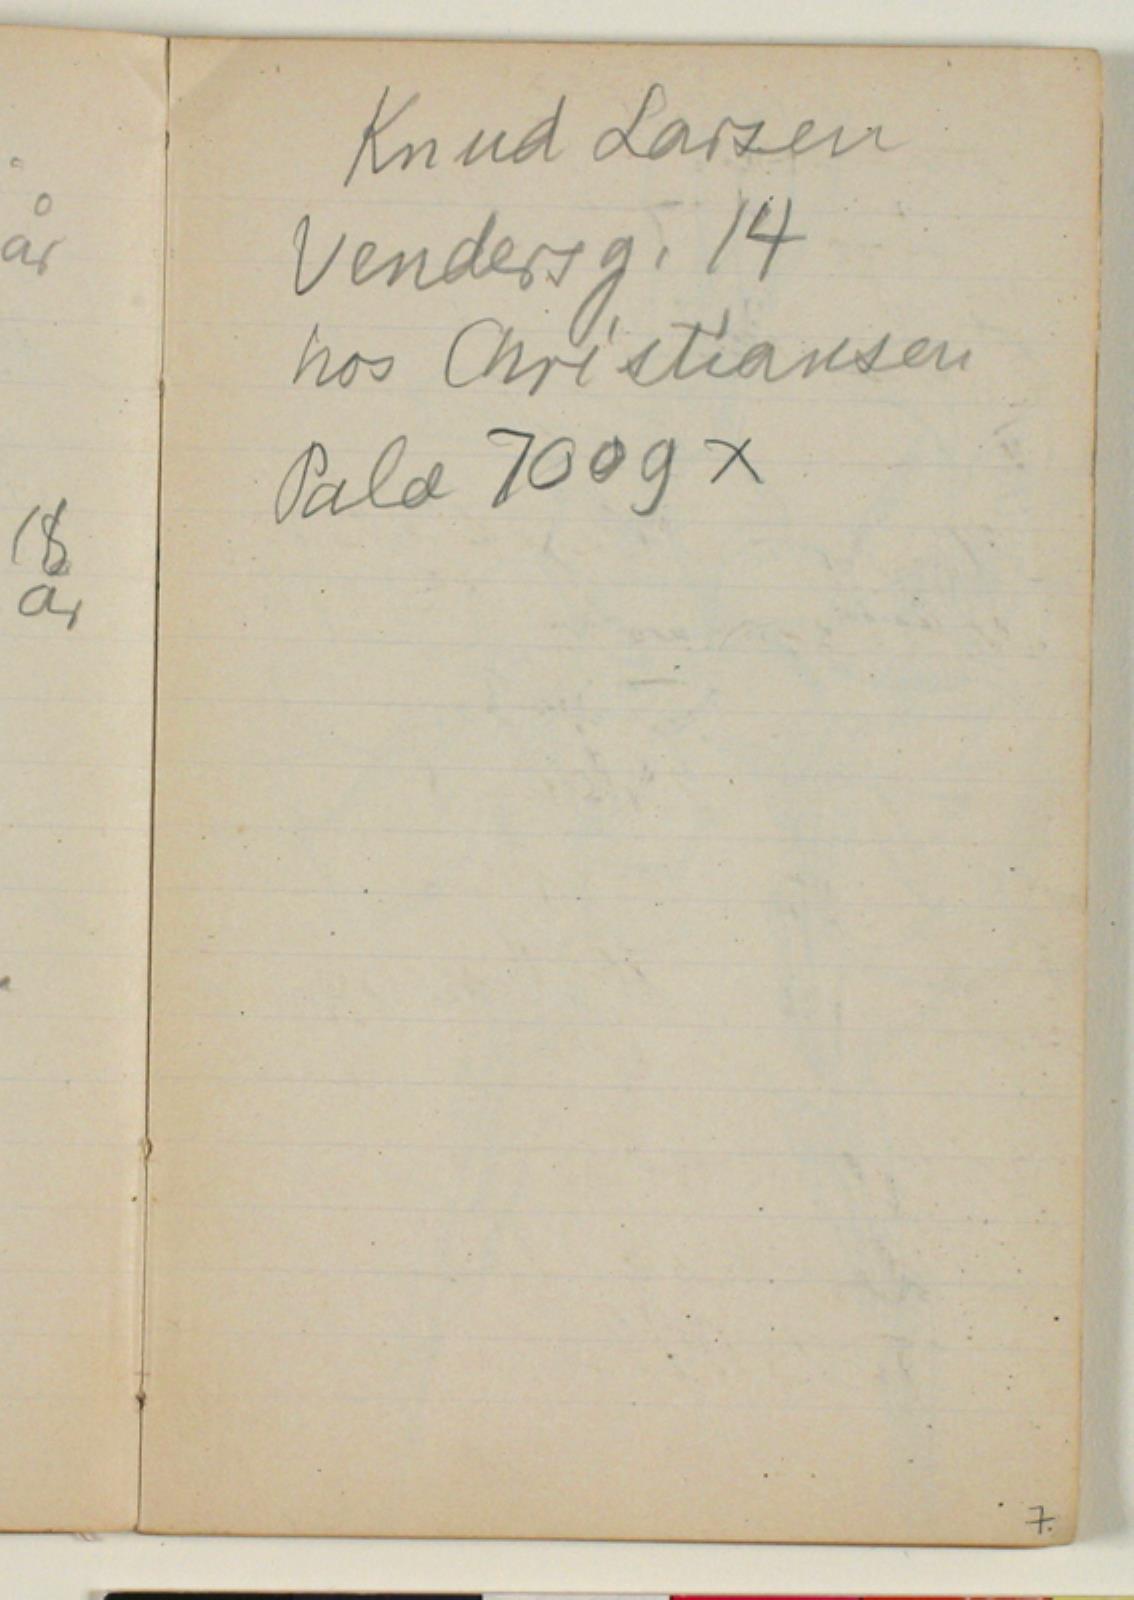 år
18
år
Knud Larsen
Vendersg. 14
hos Christiansen
Palæ 7009 x
7.